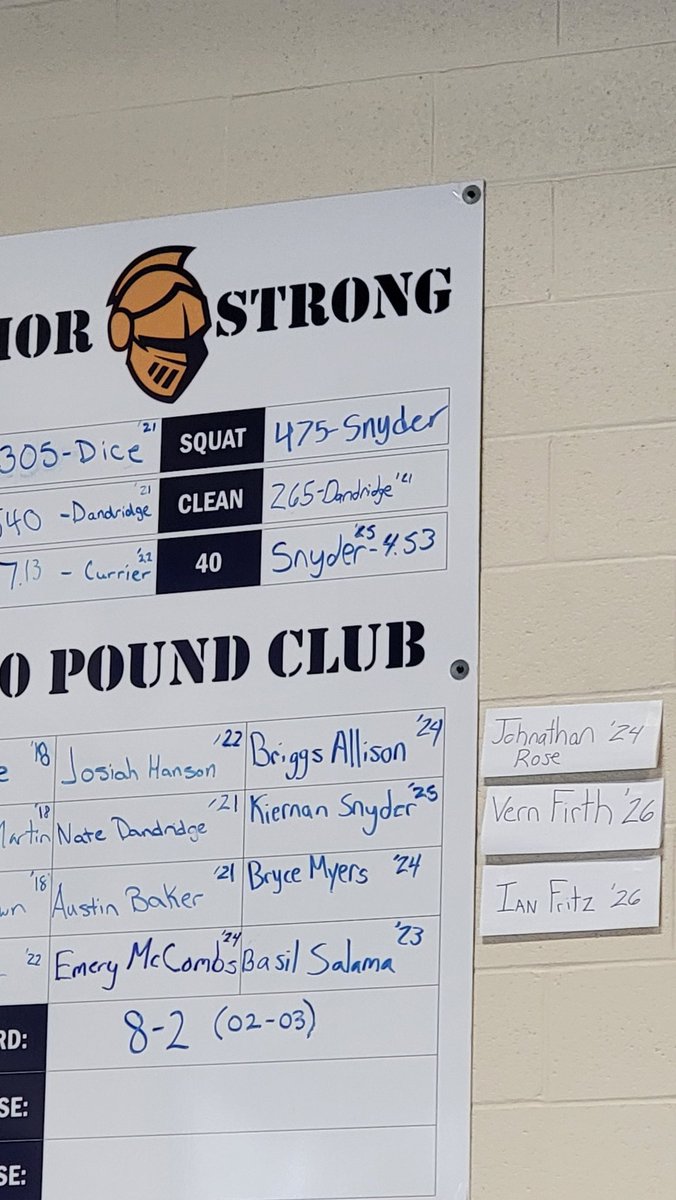 IOR STRONG
305-Dice '21 SQUAT 475-Snyder
540 -Dandridge '21 CLEAN 265-Dandridge '21
7.13 - Currier '22 40 Snyder '25 -4.53
0 POUND CLUB
e '18 Josiah Hanson '22 Briggs Allison '24
Martin '18 Nate Dandridge '21 Kiernan Snyder '25
wn '18 Austin Baker '21 Bryce Myers '24
'22 Emery McCombs '24 Basil Salama '23
RD: 8-2 (02-03)
SE:
SE:
Johnathan '24
Rose
Vern Firth '26
Ian Fritz '26